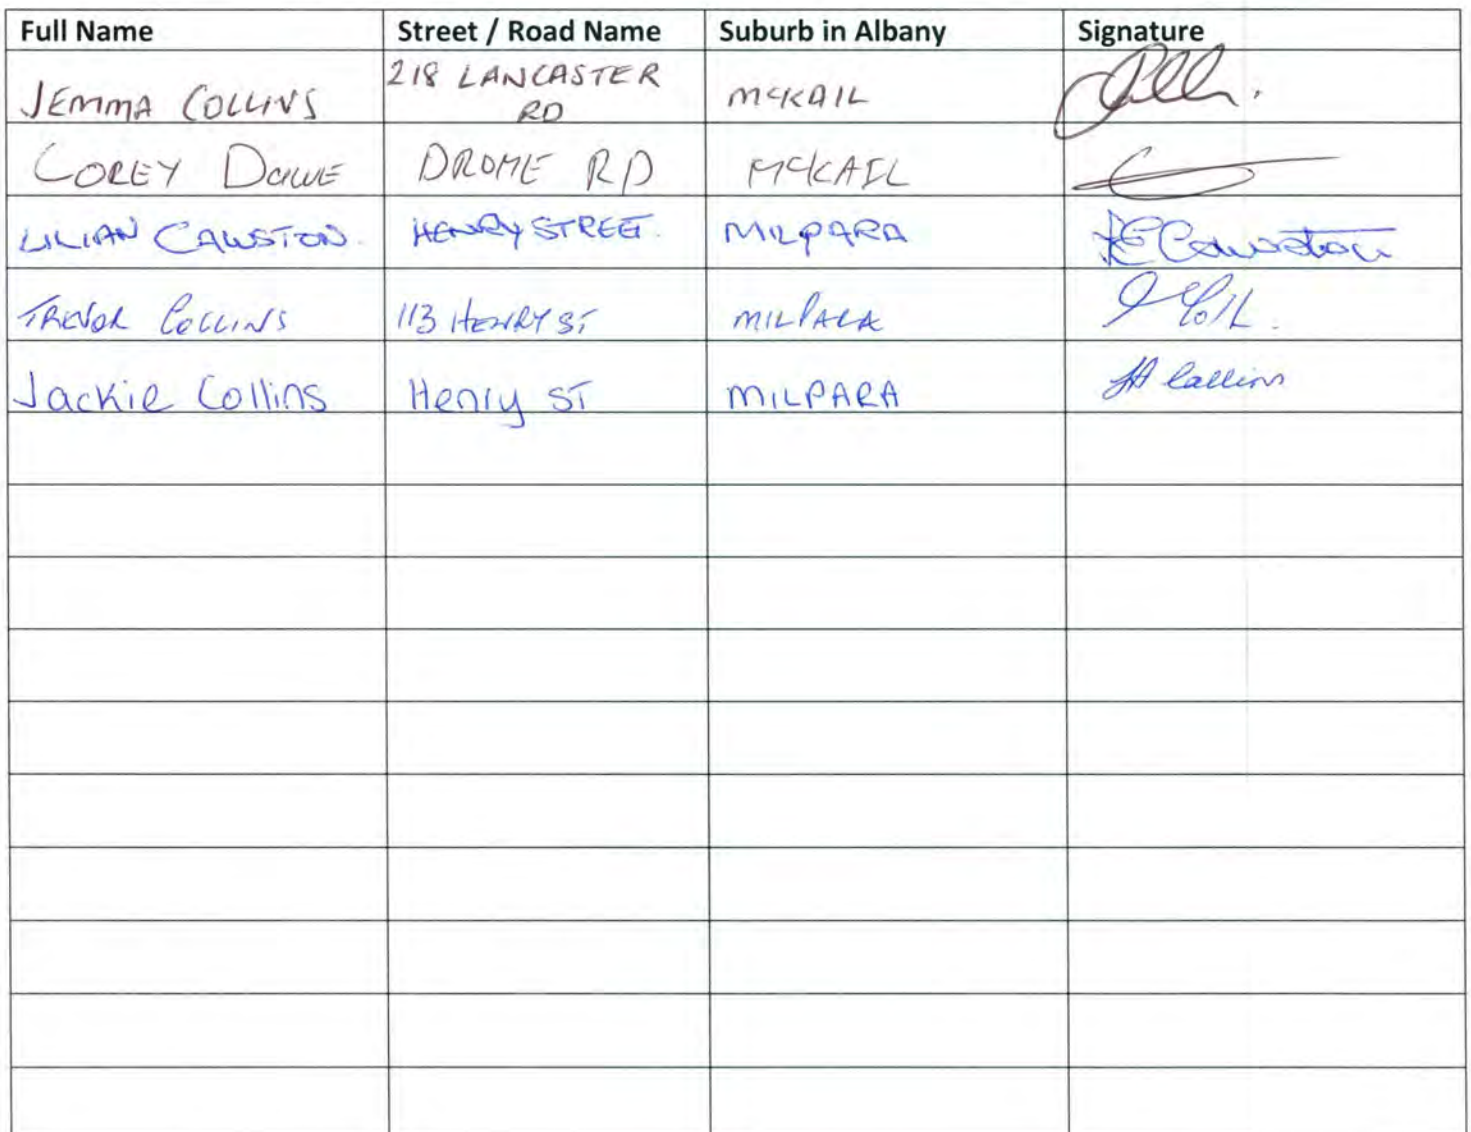 Full Name Street / Road Name Suburb in Albany Signature
JEMMA COLLINS 218 LANCASTER RD MCKAIL
COREY DOWE DROME RD MCKAIL
LILIAN CAWSTON. HENRY STREET. MILPARA LE Cawston
TREVOR COLLINS 113 HENRY ST MILPARA
Jackie Collins Henry ST MILPARA JA Collins